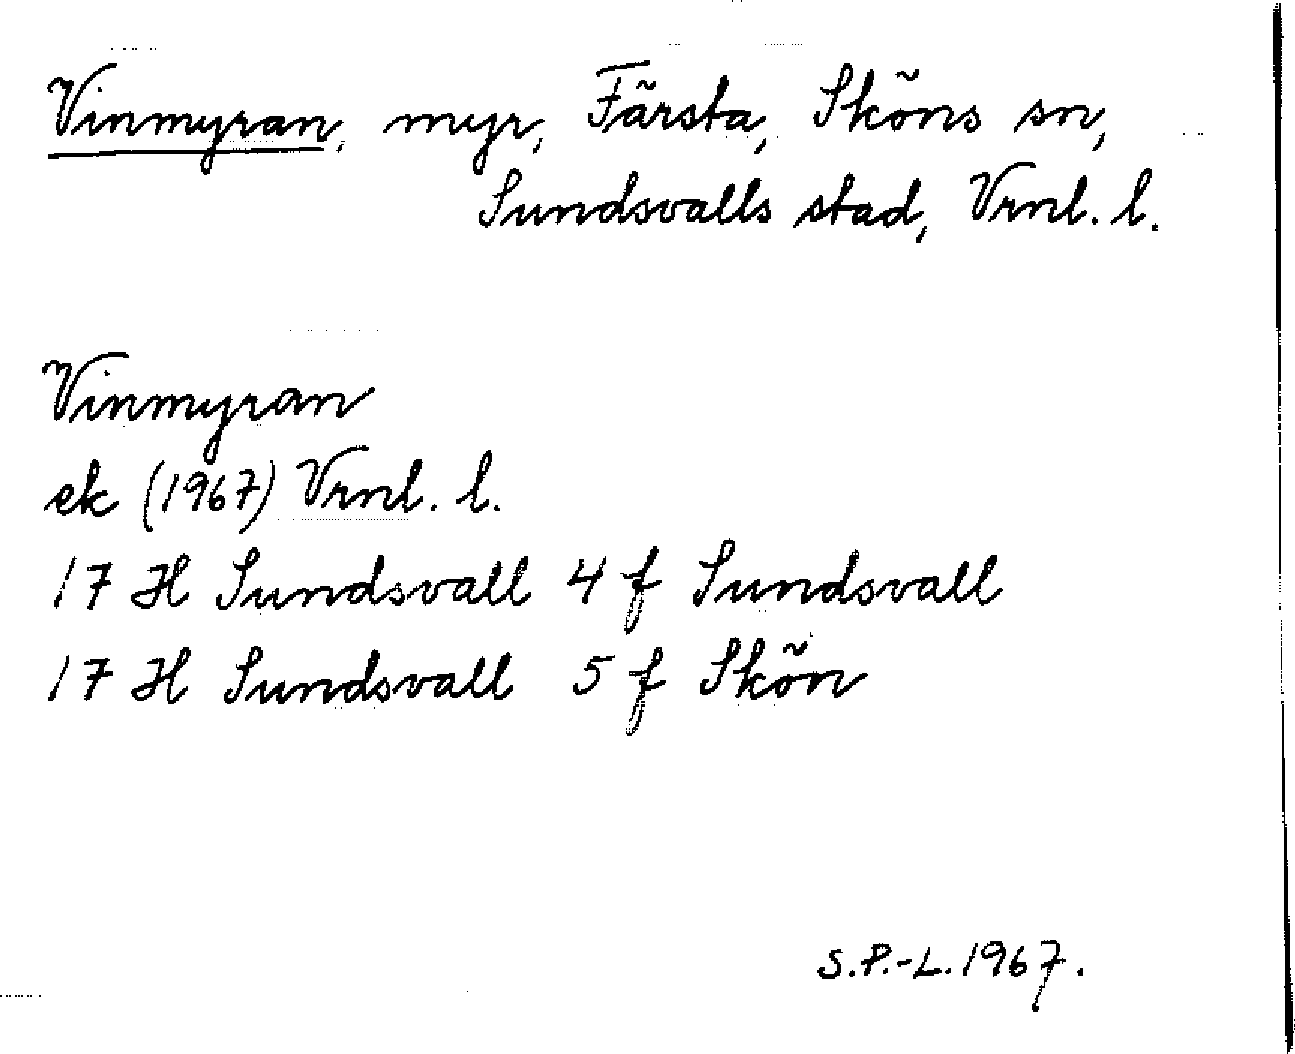 Vinmyran, myr, Färsta, Sköns sn,
Sundsvalls stad, Vrnl. l.
Vinmyran
ek (1967) Vrnl. l.
17 H Sundsvall 4 f Sundsvall
17 H Sundsvall 5 f Skön
S.P.-L. 1967.